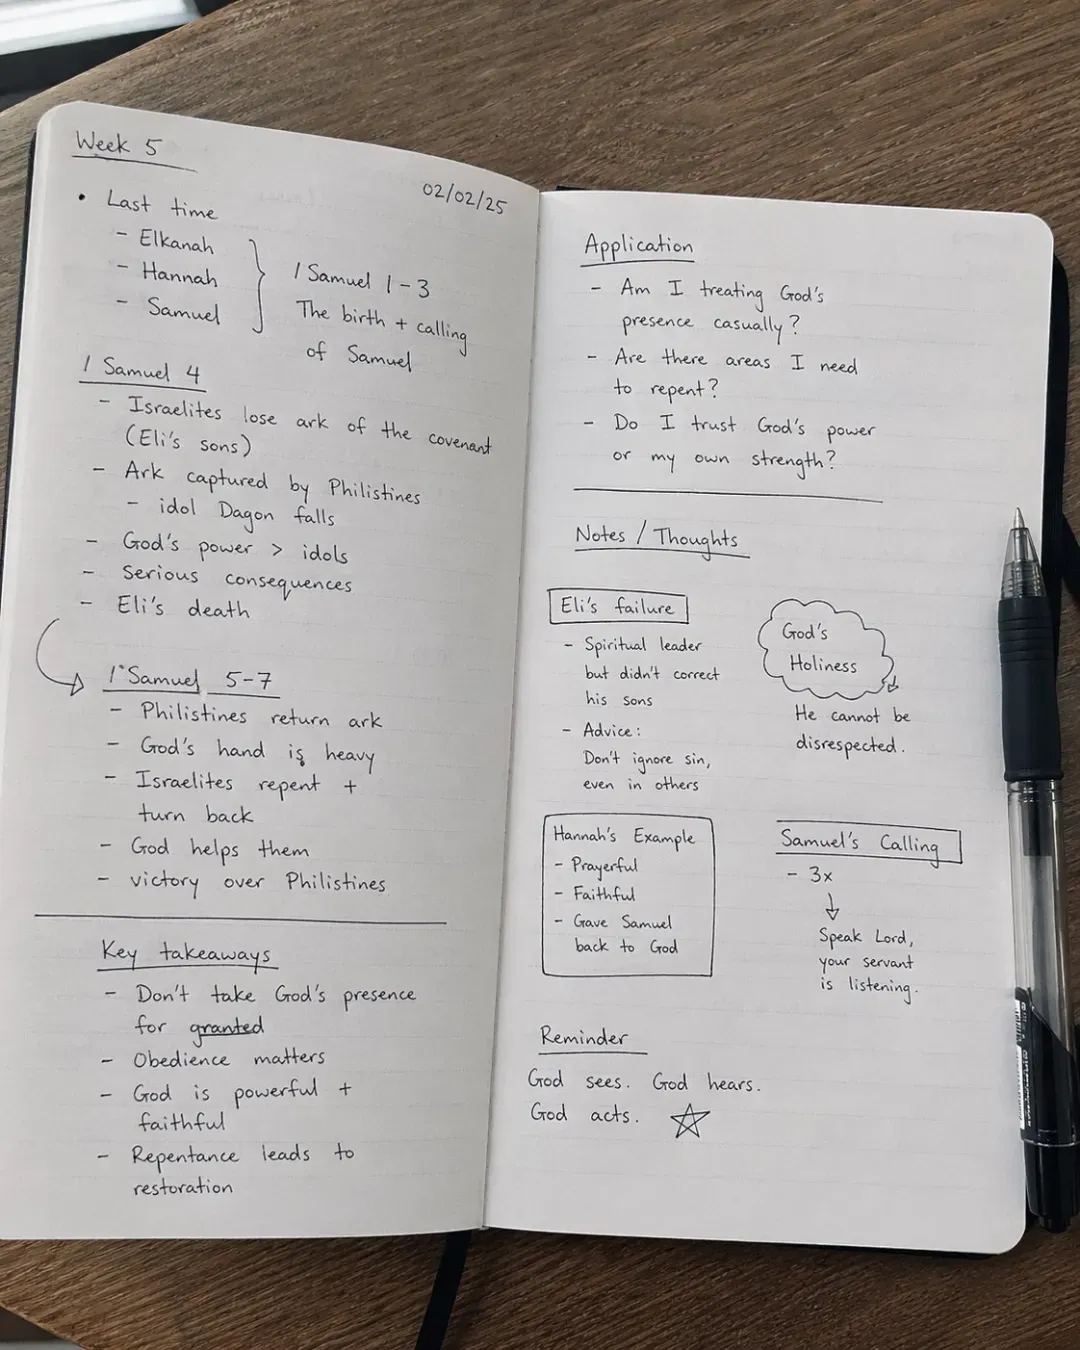 Week 5
02/02/25
• Last time
- Elkanah
- Hannah
- Samuel
1 Samuel 1-3
The birth + calling
of Samuel
1 Samuel 4
- Israelites lose ark of the covenant
(Eli's sons)
- Ark captured by Philistines
- idol Dagon falls
- God's power > idols
- Serious consequences
- Eli's death
1 Samuel 5-7
- Philistines return ark
- God's hand is heavy
- Israelites repent +
turn back
- God helps them
- victory over Philistines
Key takeaways
- Don't take God's presence
for granted
- Obedience matters
- God is powerful +
faithful
- Repentance leads to
restoration
Application
- Am I treating God's
presence casually?
- Are there areas I need
to repent?
- Do I trust God's power
or my own strength?
Notes / Thoughts
Eli's failure
- Spiritual leader
but didn't correct
his sons
- Advice:
Don't ignore sin,
even in others
God's
Holiness
He cannot be
disrespected.
Hannah's Example
- Prayerful
- Faithful
- Gave Samuel
back to God
Samuel's Calling
- 3x
Speak Lord,
your servant
is listening.
Reminder
God sees. God hears.
God acts.